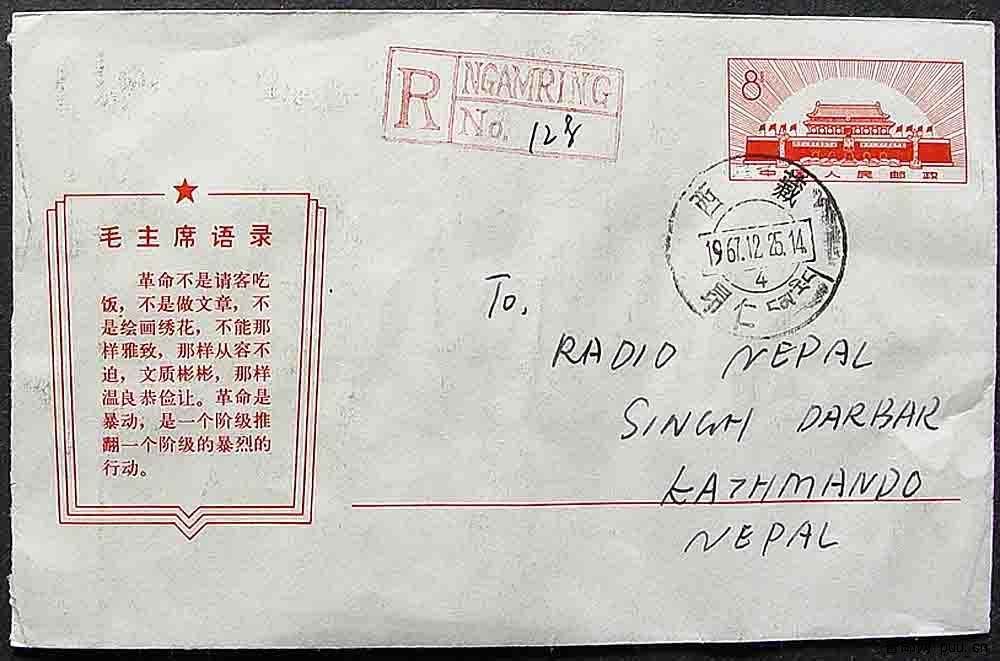 R NGAMRING
No. 128
8分
中华人民邮政
西藏
1967.12.25.14
4
昂仁
毛主席语录
革命不是请客吃
饭，不是做文章，不
是绘画绣花，不能那
样雅致，那样从容不
迫，文质彬彬，那样
温良恭俭让。革命是
暴动，是一个阶级推
翻一个阶级的暴烈的
行动。
To,
RADIO NEPAL
SINGH DARBAR
KATHMANDO
NEPAL
puu.cn